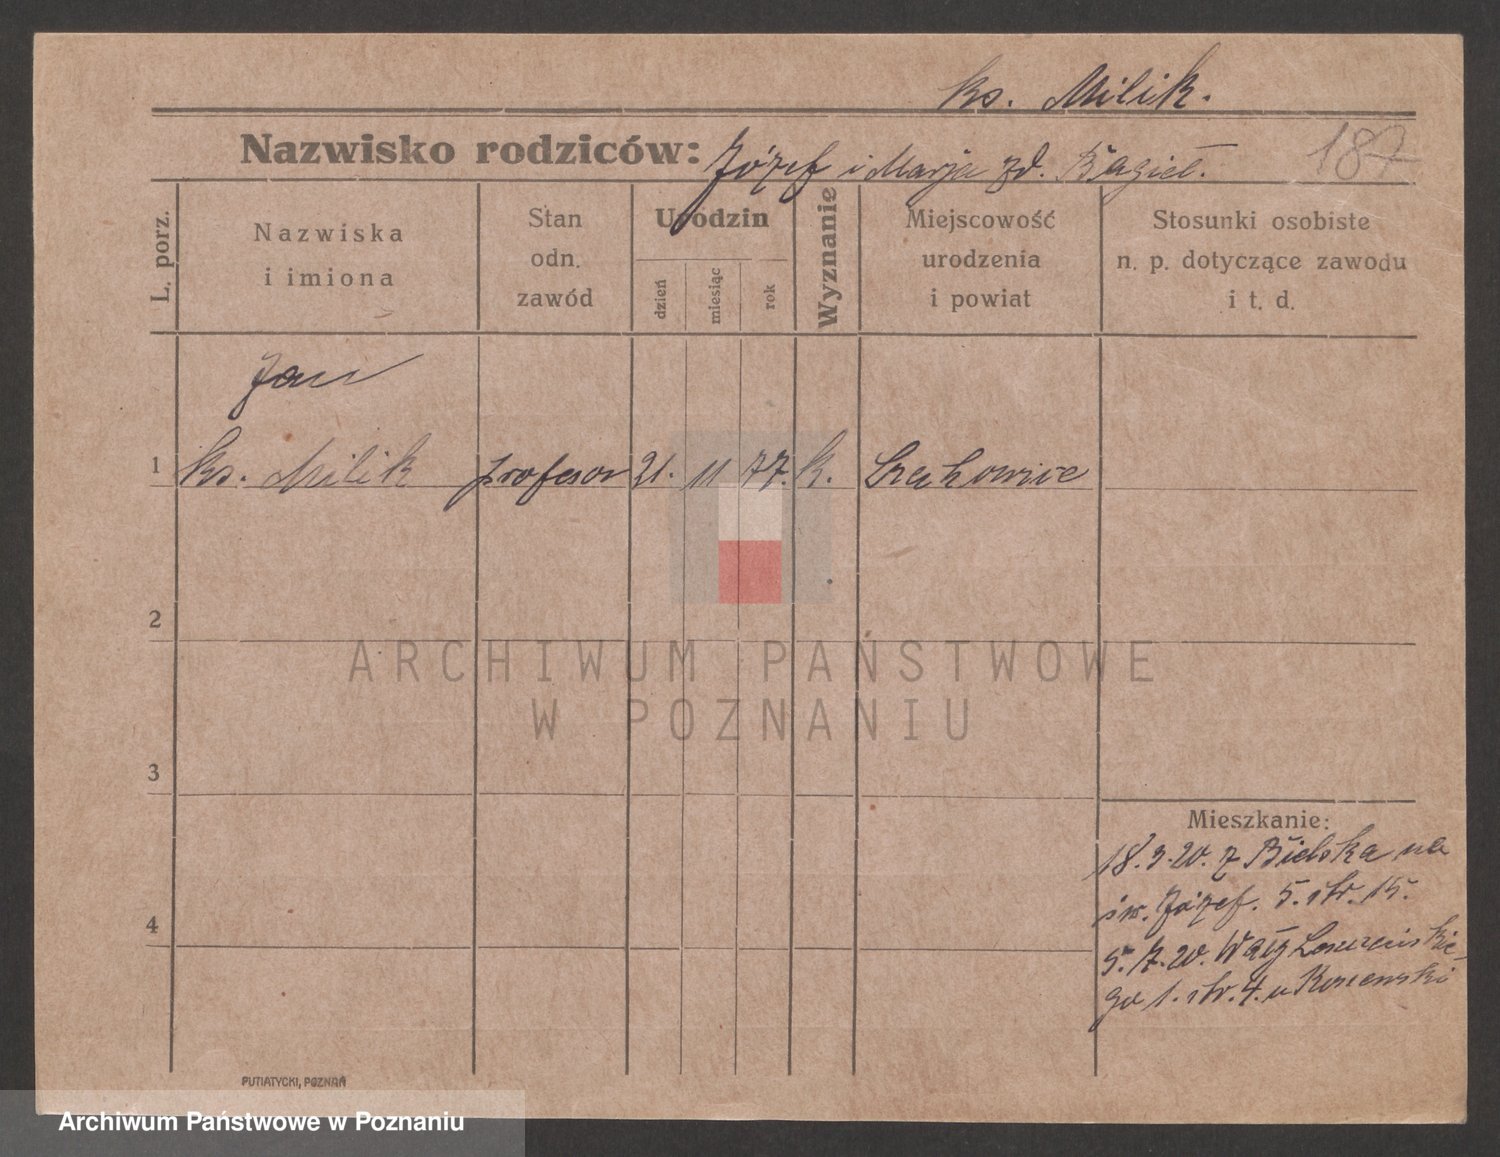 ks. Milik.
Nazwisko rodziców: Józef i Marja zd. Bagieł.
187
L. porz.
Nazwiska
i imiona
Stan
odn.
zawód
Urodzin
dzień
miesiąc
rok
Wyznanie
Miejscowość
urodzenia
i powiat
Stosunki osobiste
n. p. dotyczące zawodu
i t. d.
Jan
1 ks. Milik profesor 21. 11 77. k.
2
3
4
ARCHIWUM PAŃSTWOWE
W POZNANIU
Mieszkanie:
18.9.20. z Bielska na
św. Józef. 5. str. 15.
5. 7.20. Wały
go 1. str. 4. u
PUTIATYCKI, POZNAŃ
Archiwum Państwowe w Poznaniu